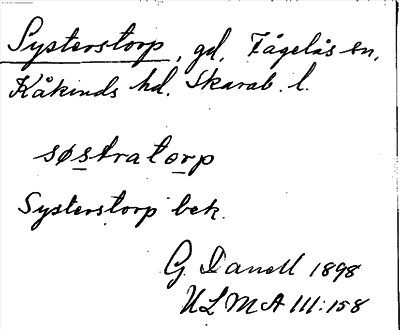 Systerstorp, gd, Fågelås sn,
Kåkinds hd. Skarab. l.
søstratorp
Systerstorp bek.
G Danell 1898
ULMA 111:158